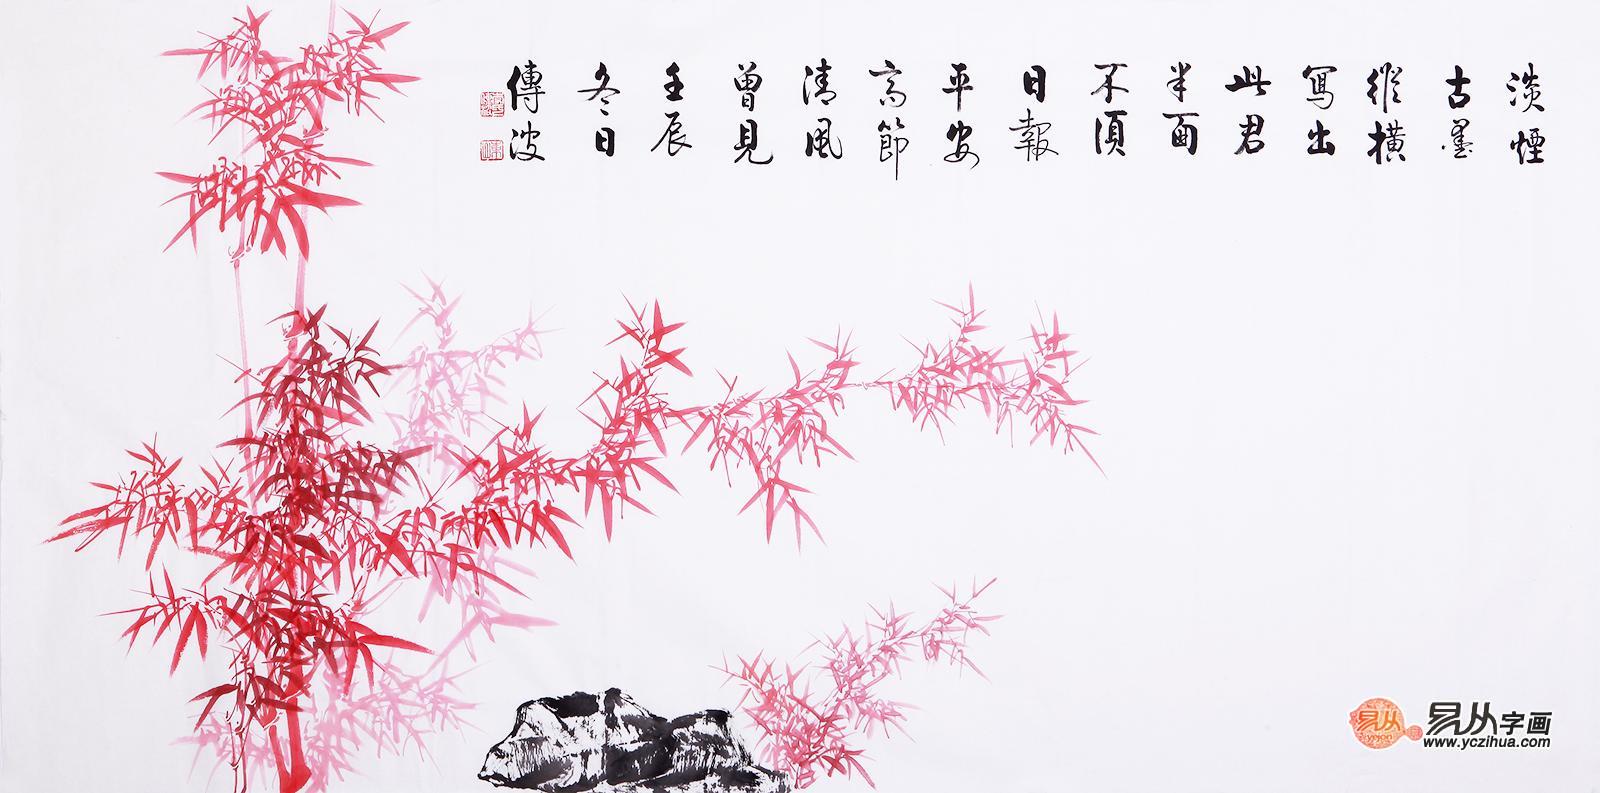 淡煙
古墨
縱橫
寫出
此君
半面
不須
日報
平安
高節
清風
曾見
壬辰
冬日
傳波
易从字画
www.yczihua.com